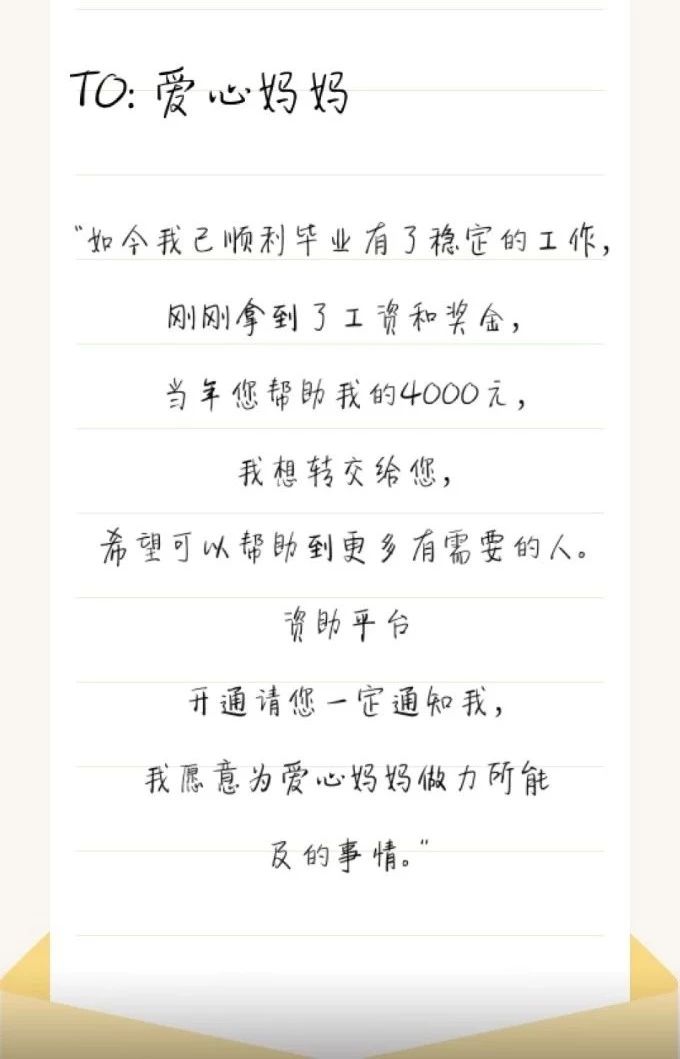 TO: 爱心妈妈
“如今我已顺利毕业有了稳定的工作,
刚刚拿到了工资和奖金,
当年您帮助我的4000元,
我想转交给您,
希望可以帮助到更多有需要的人。
资助平台
开通请您一定通知我,
我愿意为爱心妈妈做力所能
及的事情。”